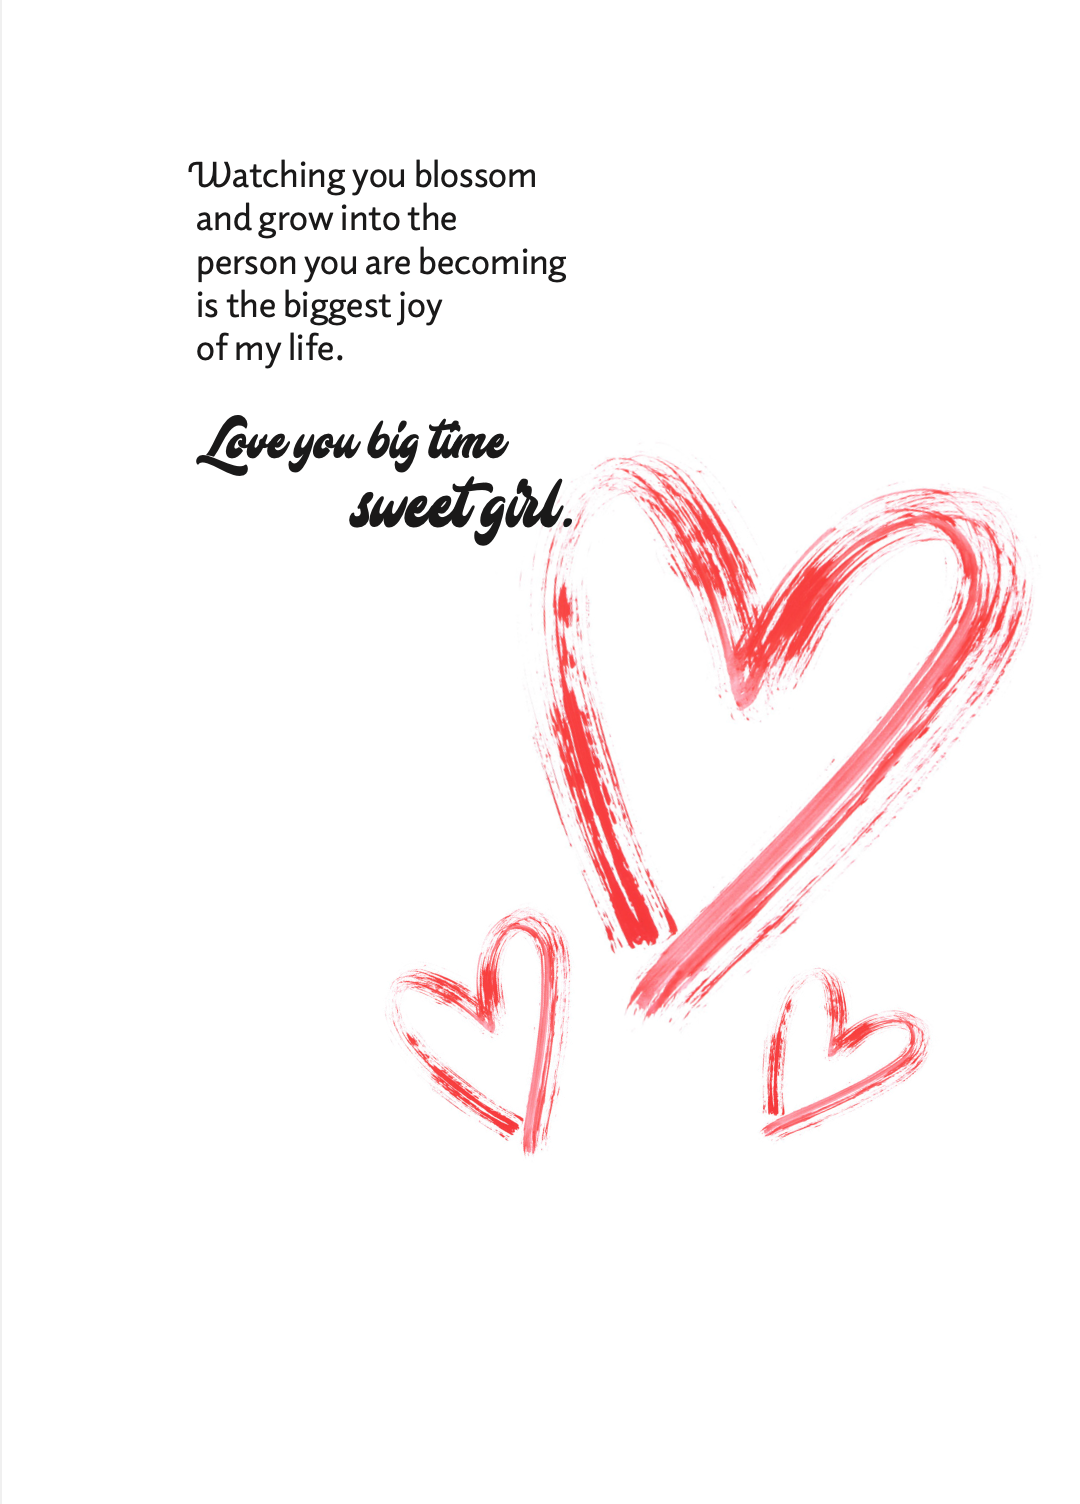 Watching you blossom
and grow into the
person you are becoming
is the biggest joy
of my life.
Love you big time
sweet girl.